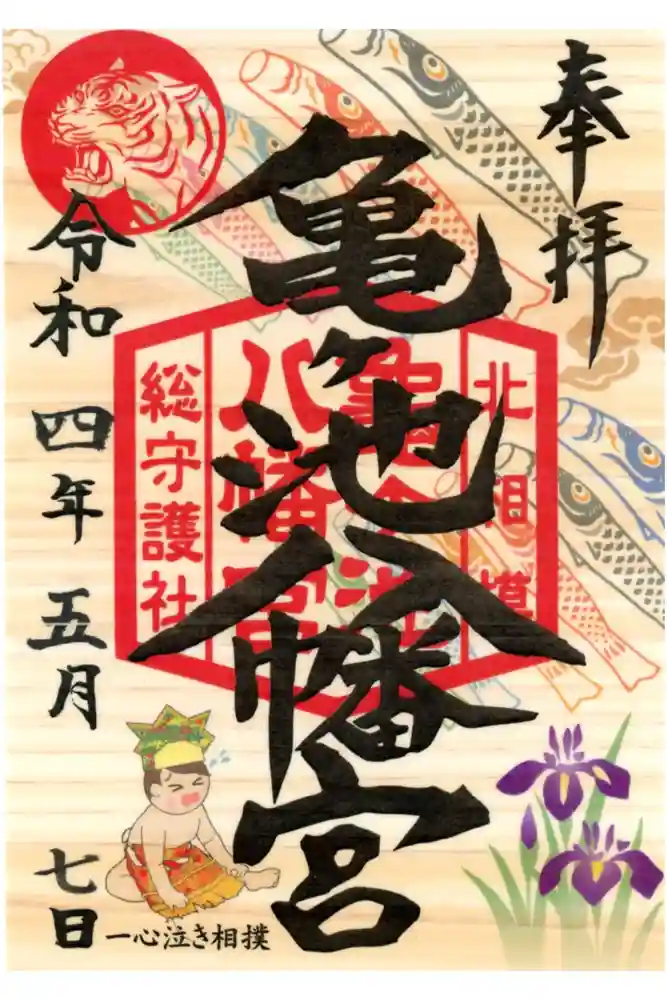 奉拝
亀ヶ池八幡宮
北相模
龜ヶ池
八幡宮
総守護社
令和四年五月七日
一心泣き相撲